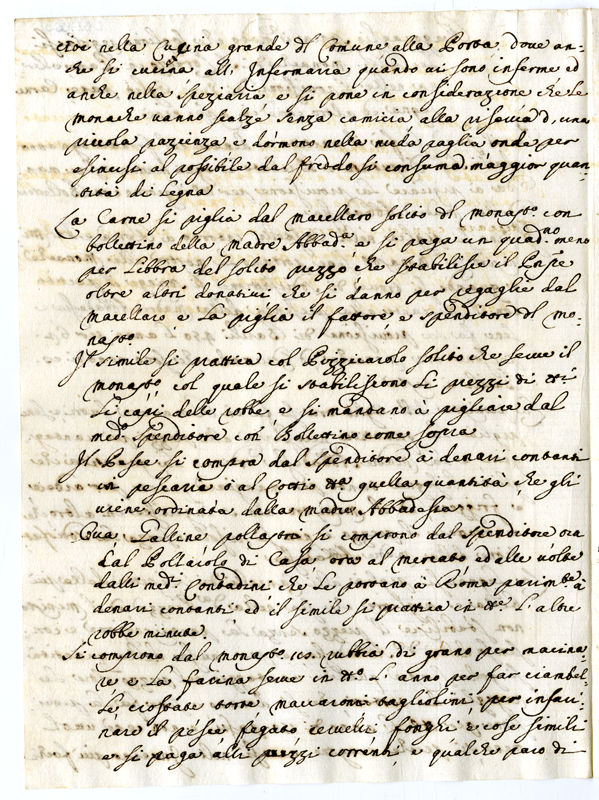 cioè nella Cucina grande del Comune alla Porta, dove an-
che si cucina all' Infermaria quando ui sono inferme ed
anche nella speziaria e si pone in considerazione che le
monache uanno scalze senza camicia alla riserua d'una
piccola pazienza e dormono nella nuda paglia onde per
esimersi al possibile dal freddo si consuma maggior quan-
tità di legna
La Carne si piglia dal macellaro solito del monast.º con
bollettino della madre Abbad.ª e si paga un quad.no meno
per Libbra del solito prezzo che stabilisce il
oltre altri donatiui che si danno per regaglie dal
macellaro e La piglia il fattore e spenditore del mo-
nast.º
Il simile si prattica col Pizzicarolo solito che serue il
monast.º col quale si stabiliscono Li prezzi di tti
Li capi delle robbe e si mandano à pigliare dal
med.º spenditore con Bollettino come sopra
Il Pesce si compra dal spenditore à denari contanti
in pescaria ò al Cottio tta quella quantità che gli
uiene ordinata dalla madre Abbadessa
Oua Galline pollastri si comprono dal spenditore ora
dal Pollarolo di Casa ora al mercato ed alle uolte
dalli med.i Contadini che Le portano à Roma parim.te à
denari contanti ed il simile si prattica in tto L' altre
robbe minute.
Si comprono dal monast.º rubbia di grano per macina-
re e La farina serue in tto L' anno per far ciambel-
Le crostate torte maccaroni tagliolini per infari-
nare il pesce fegato ceruelli fonghi e cose simili
e si paga alli prezzi correnti e qualche paro di